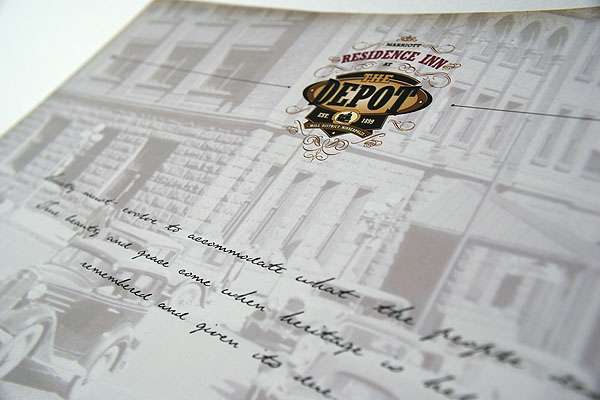 MARRIOTT
RESIDENCE INN
AT
THE
DEPOT
EST. 1899
MILL DISTRICT MINNEAPOLIS
must evolve to accommodate what the people
True beauty and grace come when heritage is
remembered and given its due.